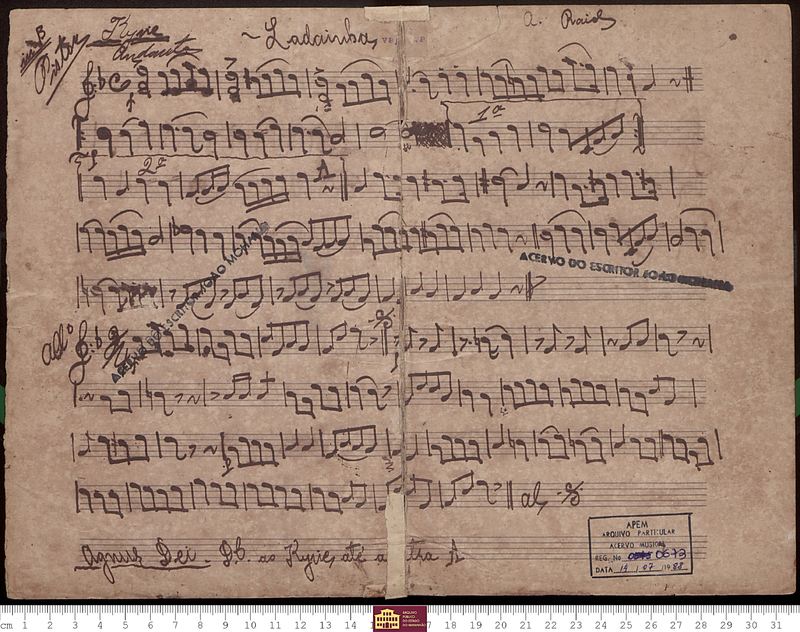 Kyrie ~ Ladainha A. Raiol
Andante
Piston
1ª
2ª
ACERVO DO ESCRITOR JOÃO MOHANA
ACERVO DO ESCRITOR JOÃO MOHANA
Allº
al
Agnus Dei D.C. ao Kyrie, até a letra A
APEM
ARQUIVO PARTICULAR
ACERVO MUSICAL
REG. No 0673
DATA 19 / 07 /19 88
cm 1 2 3 4 5 6 7 8 9 10 11 12 13 14 17 18 19 20 21 22 23 24 25 26 27 28 29 30 31